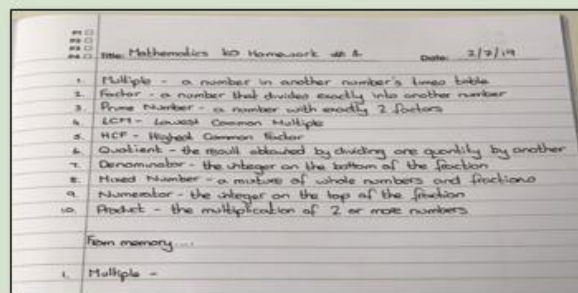 P1
P2
P3
P4
Title: Mathematics KO Homework # 1 Date: 2/7/19
1. Multiple - a number in another number's times table
2. Factor - a number that divides exactly into another number
3. Prime Number - a number with exactly 2 factors
4. LCM - Lowest Common Multiple
5. HCF - Highest Common Factor
6. Quotient - the result obtained by dividing one quantity by another
7. Denominator - the integer on the bottom of the fraction
8. Mixed Number - a mixture of whole numbers and fractions
9. Numerator - the integer on the top of the fraction
10. Product - the multiplication of 2 or more numbers
From memory....
1. Multiple -